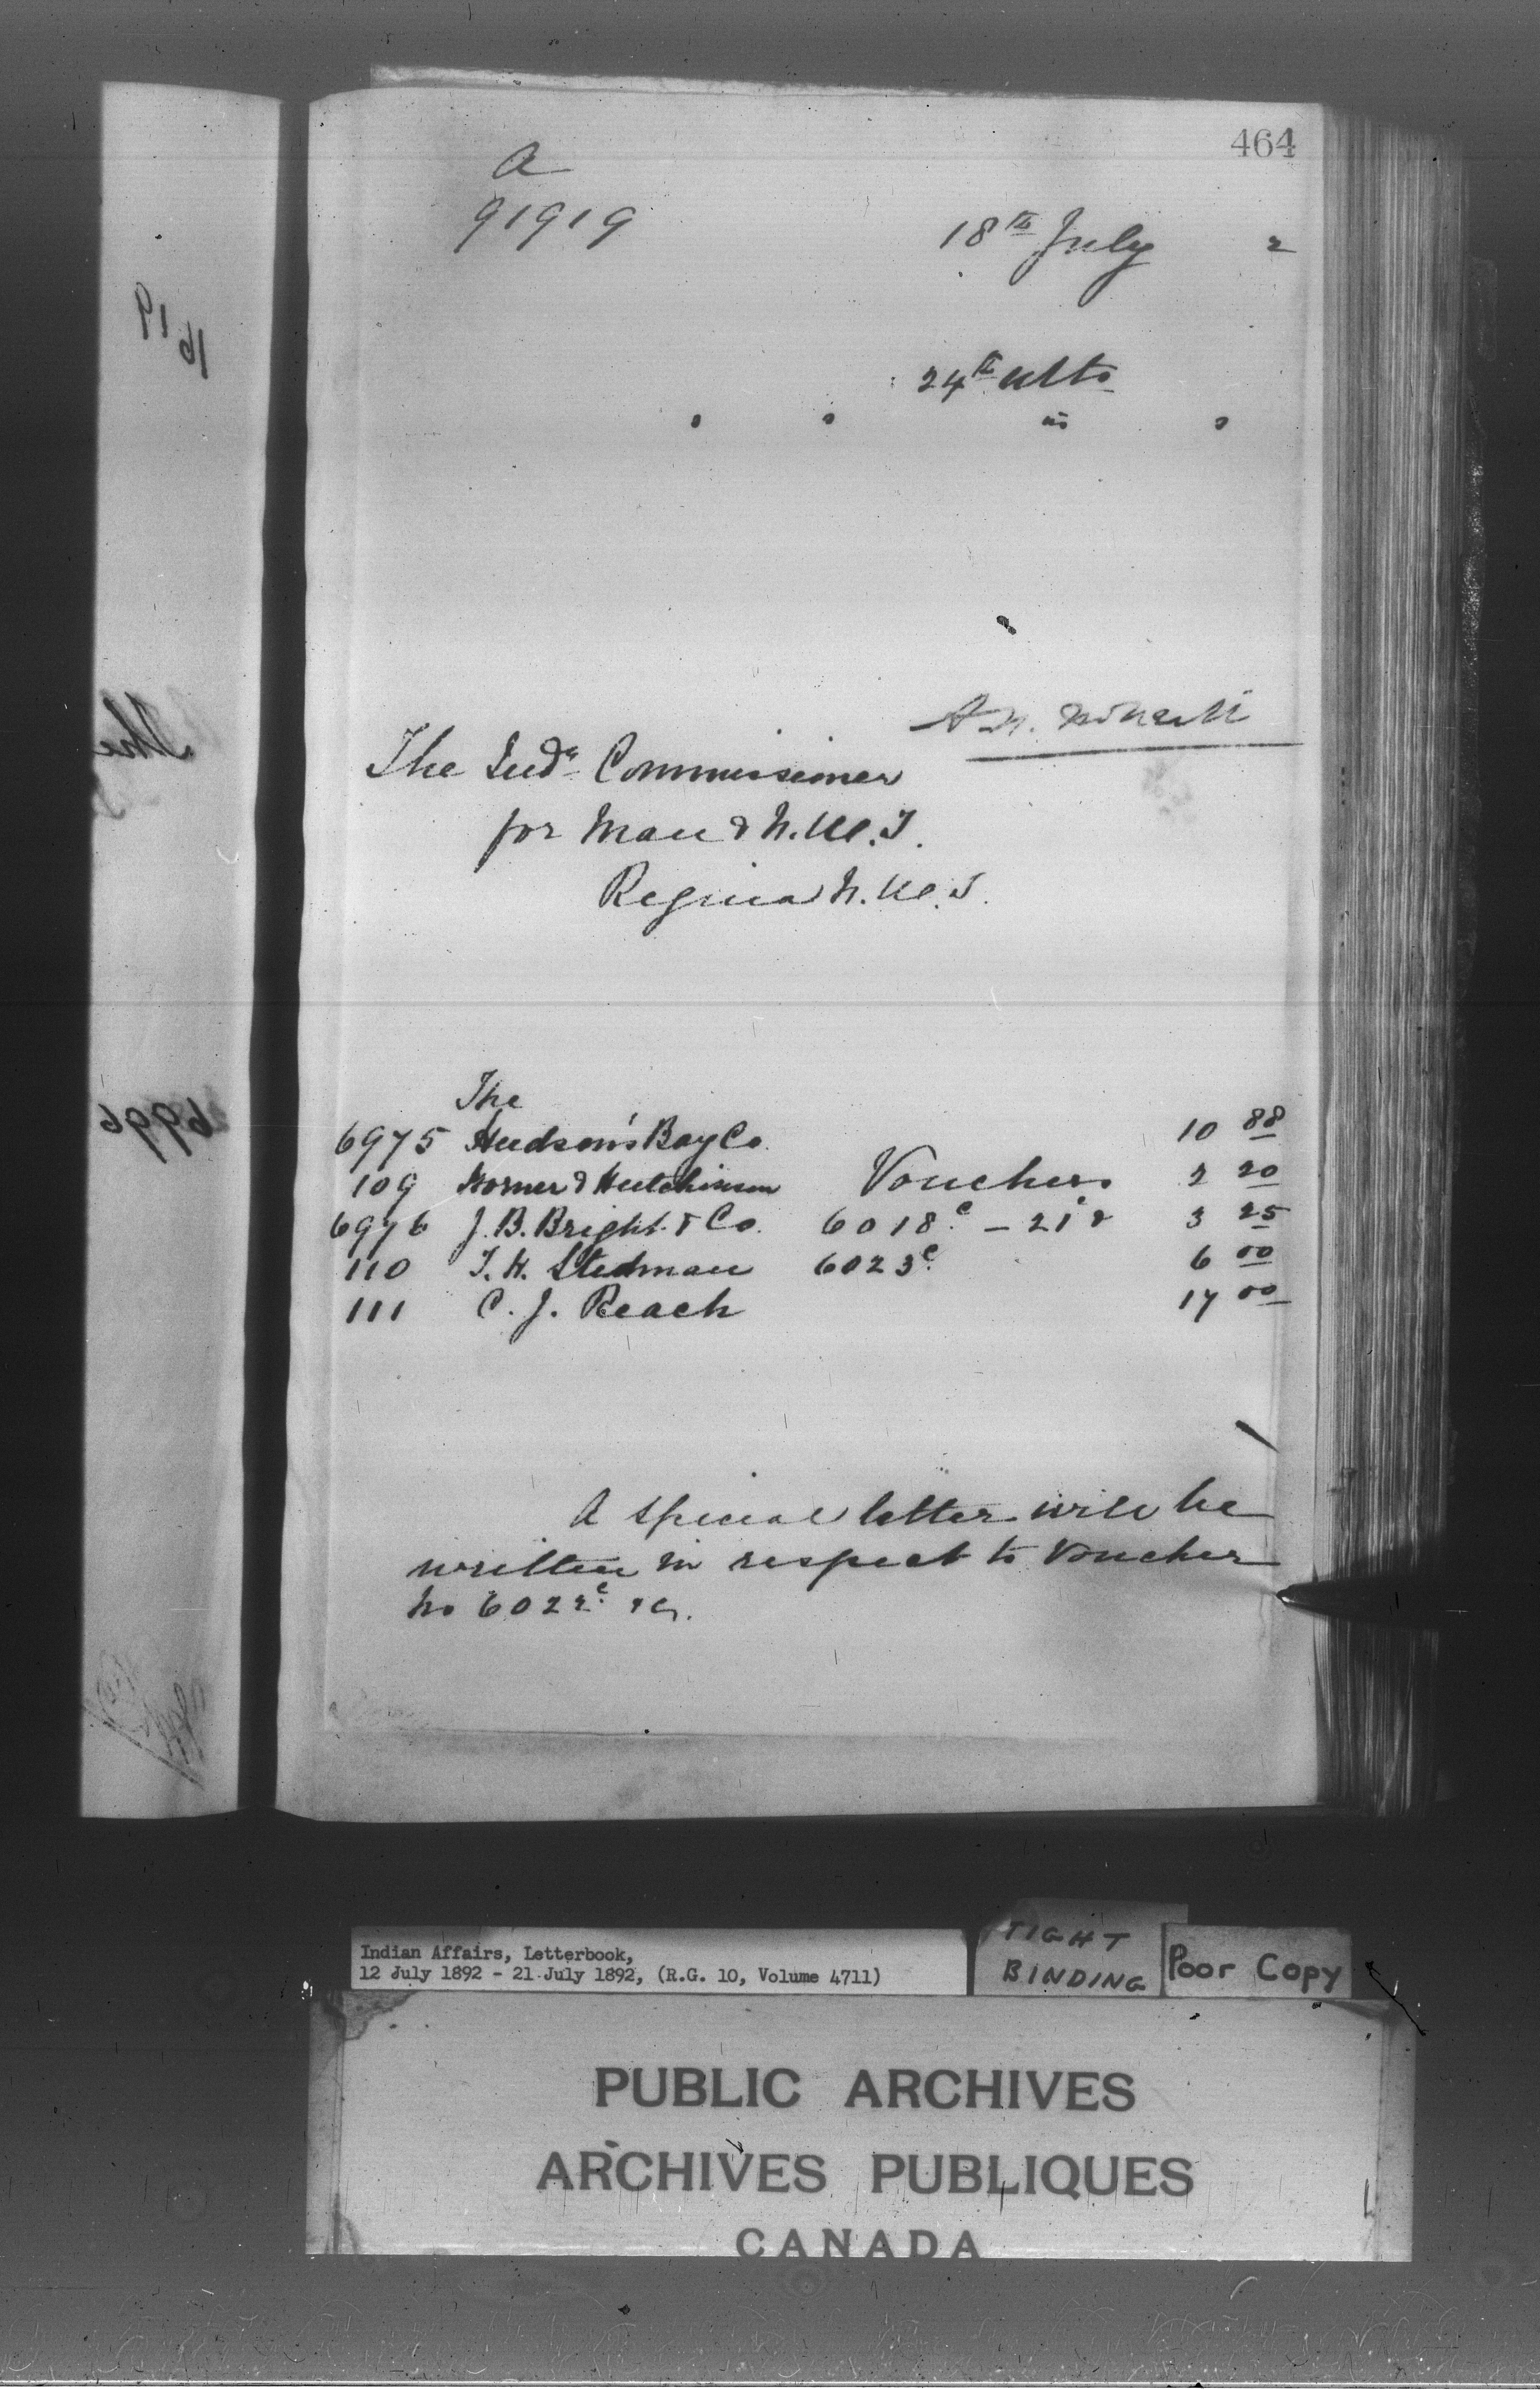 464
A
91919
18th July 2
24th ulto
The Indn Commissioner
for Man & N.W.T.
Regina N.W.T.
The
6975 Hudson's Bay Co. 10 88
109 & Hutchinson Vouchers 2 20
6976 J.B. Bright & Co. 6018c - 21 & 3 25
110 T.H. Stedman 6023c 6 00
111 C.J. Reach 17 00
A special letter will be
written in respect to Voucher
No 6022c
6996
Indian Affairs, Letterbook,
12 July 1892 - 21 July 1892, (R.G. 10, Volume 4711)
TIGHT
BINDING
Poor Copy
PUBLIC ARCHIVES
ARCHIVES PUBLIQUES
CANADA